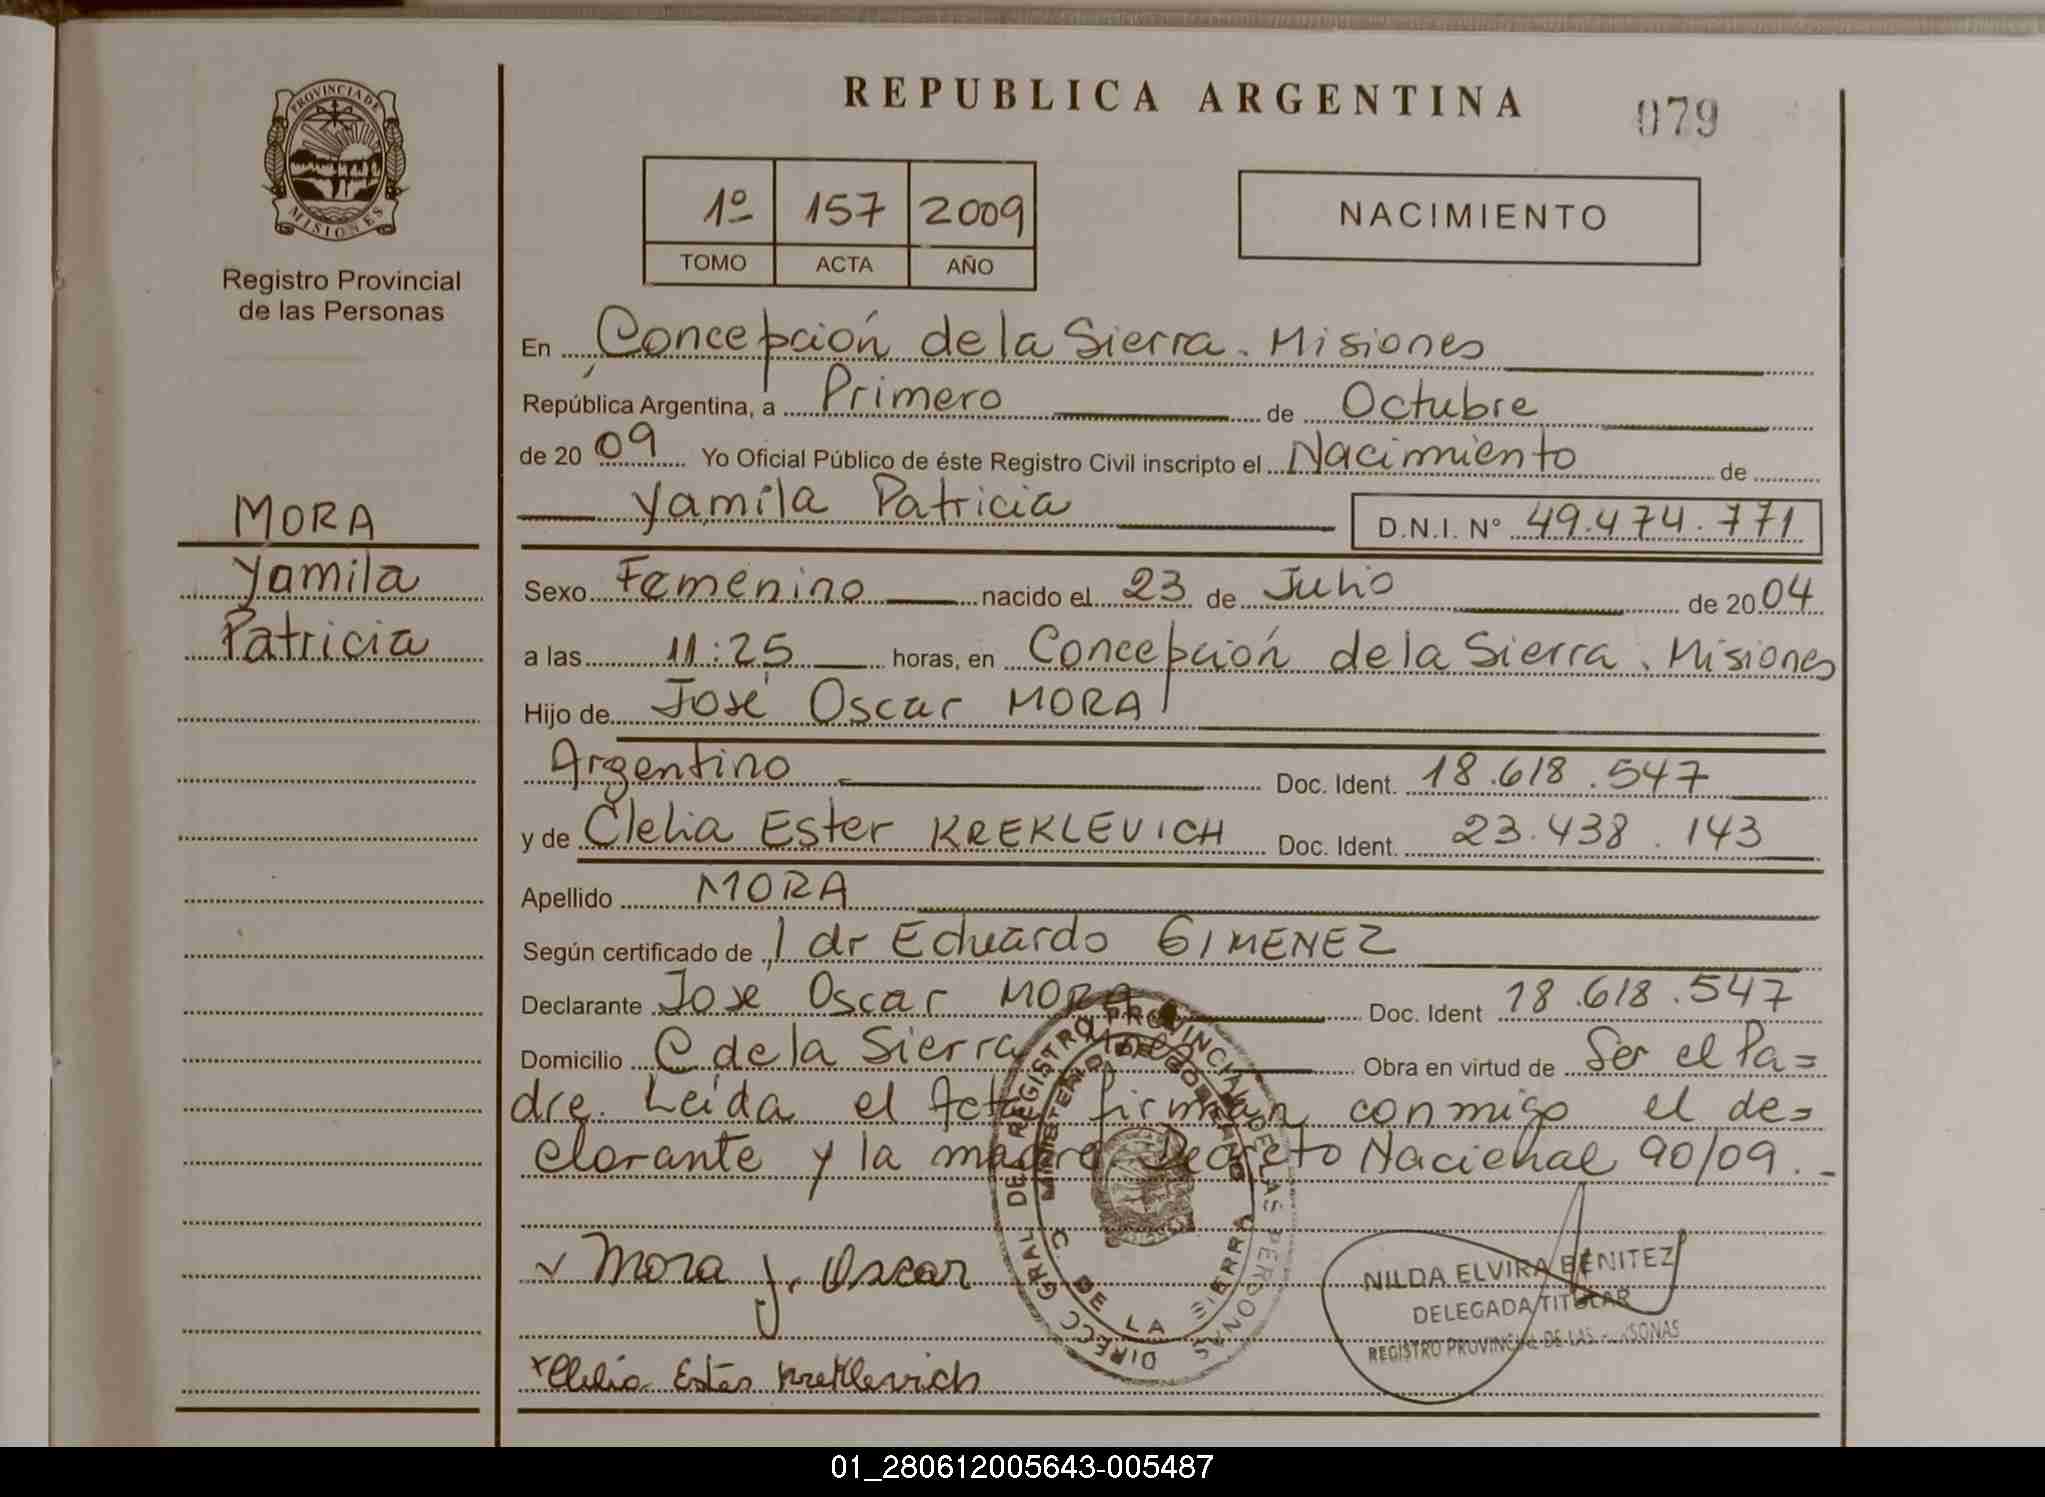 PROVINCIA DE
MISIONES
Registro Provincial
de las Personas
MORA
Yamila
Patricia
REPUBLICA ARGENTINA
079
1º 157 2009
TOMO ACTA AÑO
NACIMIENTO
En Concepción de la Sierra. Misiones
República Argentina, a Primero de Octubre
de 20 09 Yo Oficial Público de éste Registro Civil inscripto el Nacimiento de
Yamila Patricia D.N.I. N° 49.474.771
Sexo Femenino nacido el 23 de Julio de 20 04
a las 11:25 horas, en Concepción de la Sierra. Misiones
Hijo de José Oscar MORA
Argentino Doc. Ident. 18.618.547
y de Clelia Ester KREKLEVICH Doc. Ident. 23.438.143
Apellido MORA
Según certificado de l dr Eduardo GIMENEZ
Declarante Jose Oscar MORA Doc. Ident 18.618.547
Domicilio C de la Sierra Mnes Obra en virtud de Ser el Pa=
dre. Leída el Acta firman conmigo el de=
clarante y la madre Decreto Nacional 90/09.-
DIRECC GRAL DEL REGISTRO PROVINCIAL DE LAS PERSONAS
MINISTERIO DE GOBIERNO
C. DE LA SIERRA
Mora J. Oscar
NILDA ELVIRA BENITEZ
DELEGADA TITULAR
REGISTRO PROVINCIAL DE LAS PERSONAS
Clelia Ester Kreklevich
01_280612005643-005487